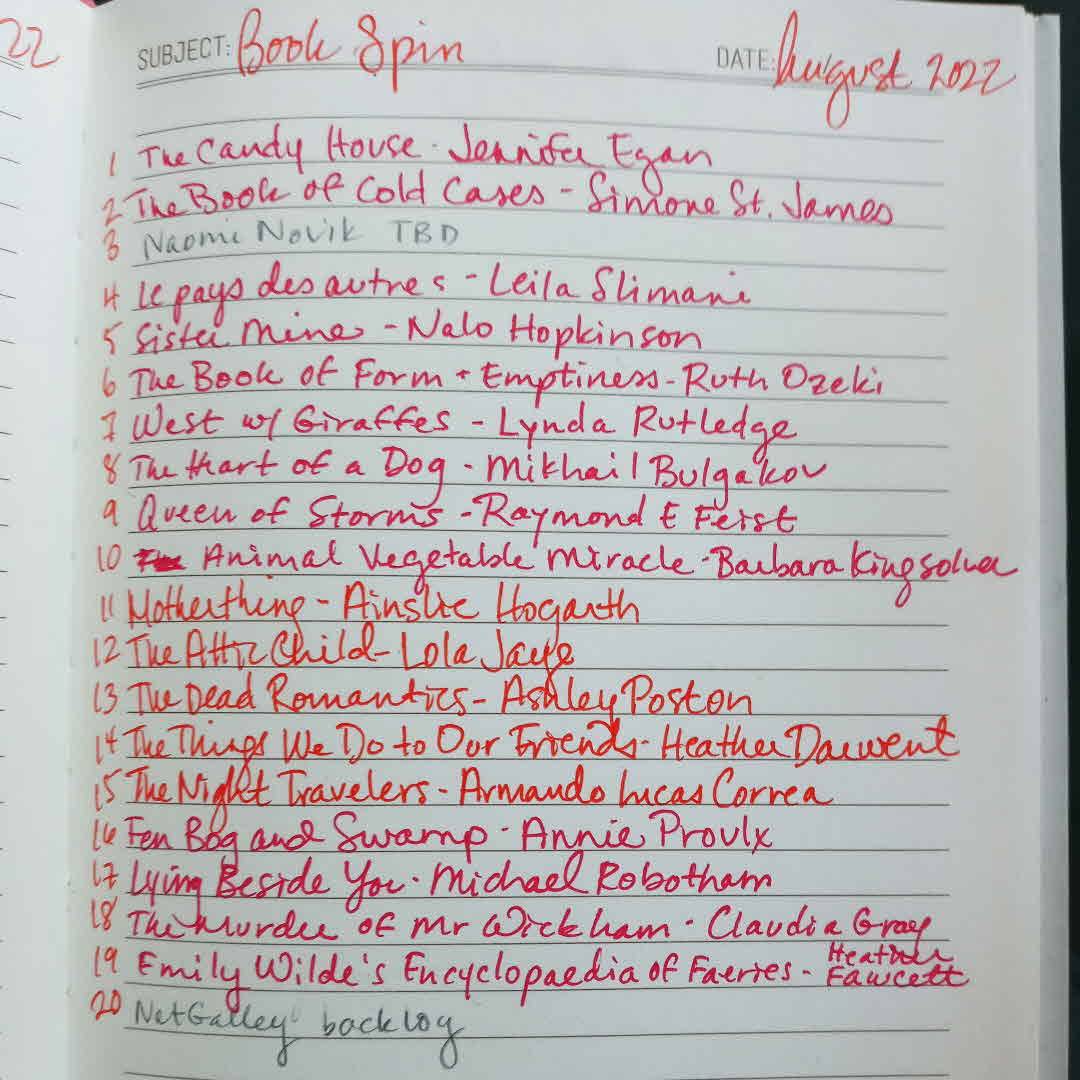 22
SUBJECT: Book Spin DATE: August 2022
1 The Candy House - Jennifer Egan
2 The Book of Cold Cases - Simone St. James
3 Naomi Novik TBD
4 Le pays des autres - Leila Slimani
5 Sister Mine - Nalo Hopkinson
6 The Book of Form + Emptiness - Ruth Ozeki
7 West w/ Giraffes - Lynda Rutledge
8 The Heart of a Dog - Mikhail Bulgakov
9 Queen of Storms - Raymond E Feist
10 Animal Vegetable Miracle - Barbara Kingsolver
11 Motherthing - Ainslie Hogarth
12 The Attic Child - Lola Jaye
13 The Dead Romantics - Ashley Poston
14 The Things We Do to Our Friends - Heather Darwent
15 The Night Travelers - Armando Lucas Correa
16 Fen Bog and Swamp - Annie Proulx
17 Lying Beside You - Michael Robotham
18 The Murder of Mr Wickham - Claudia Gray
19 Emily Wilde's Encyclopaedia of Faeries - Heather
Fawcett
20 NetGalley backlog